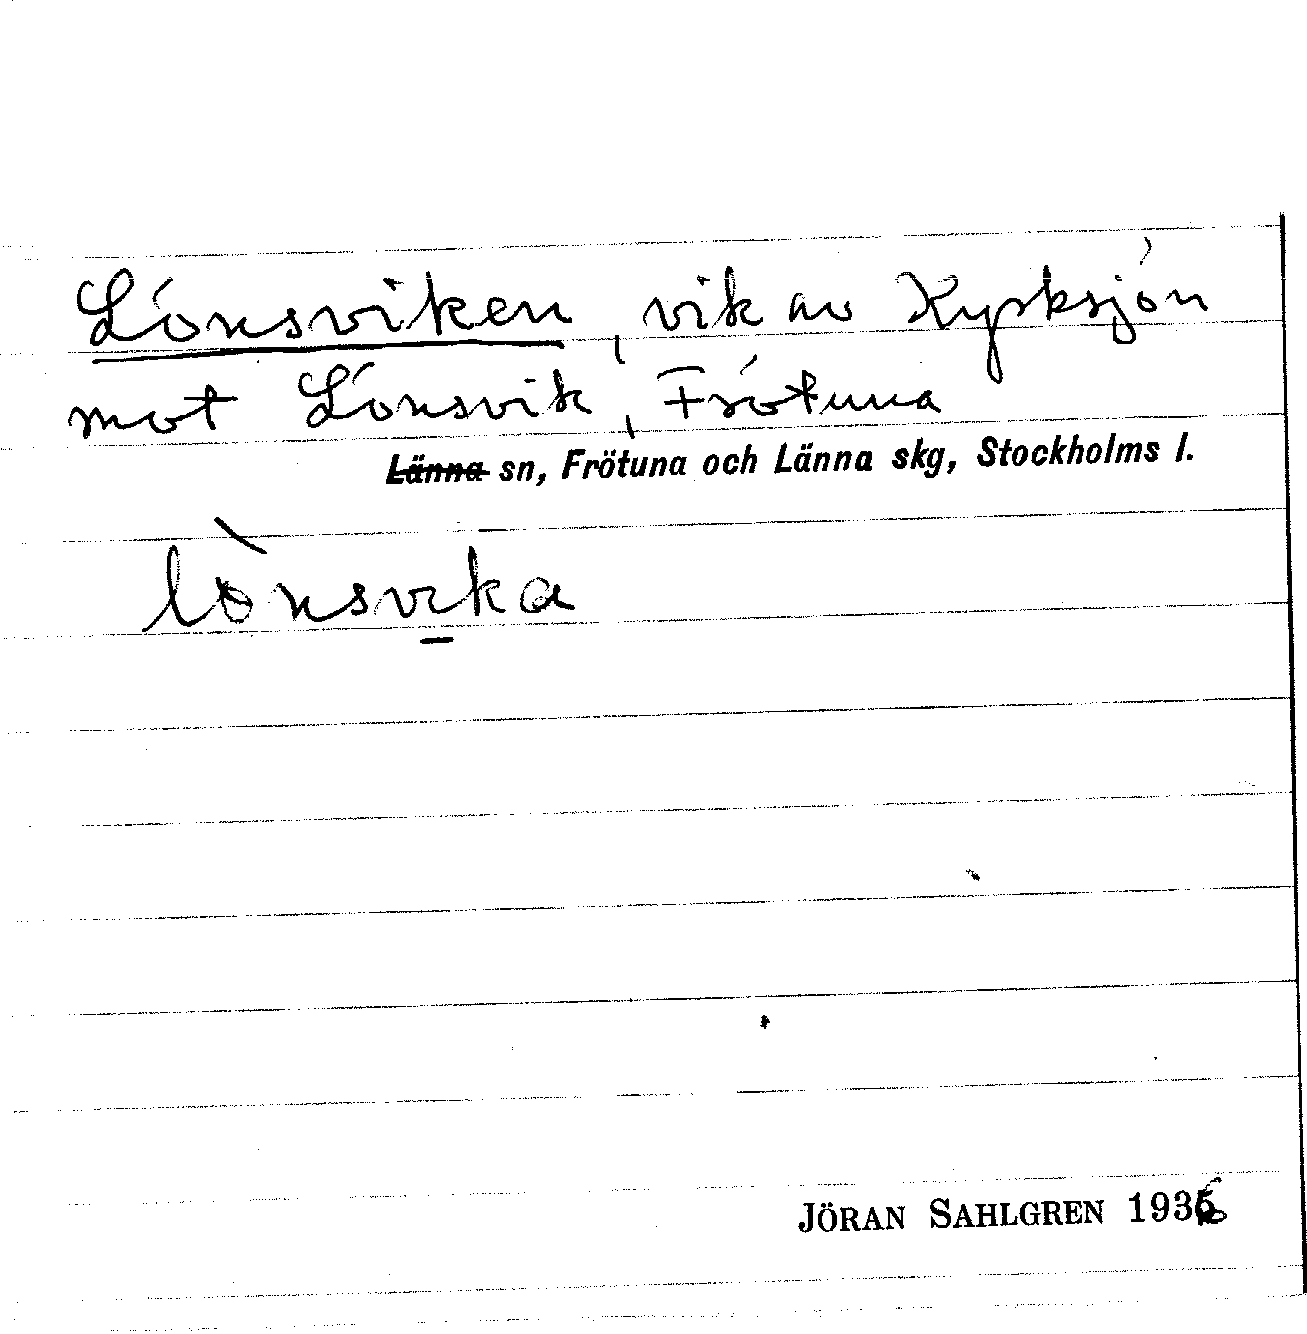 Lönsviken, vik av Kyrksjön
mot Lönsvik, Frötuna
Länna sn, Frötuna och Länna skg, Stockholms l.
lònsvika
JÖRAN SAHLGREN 1936